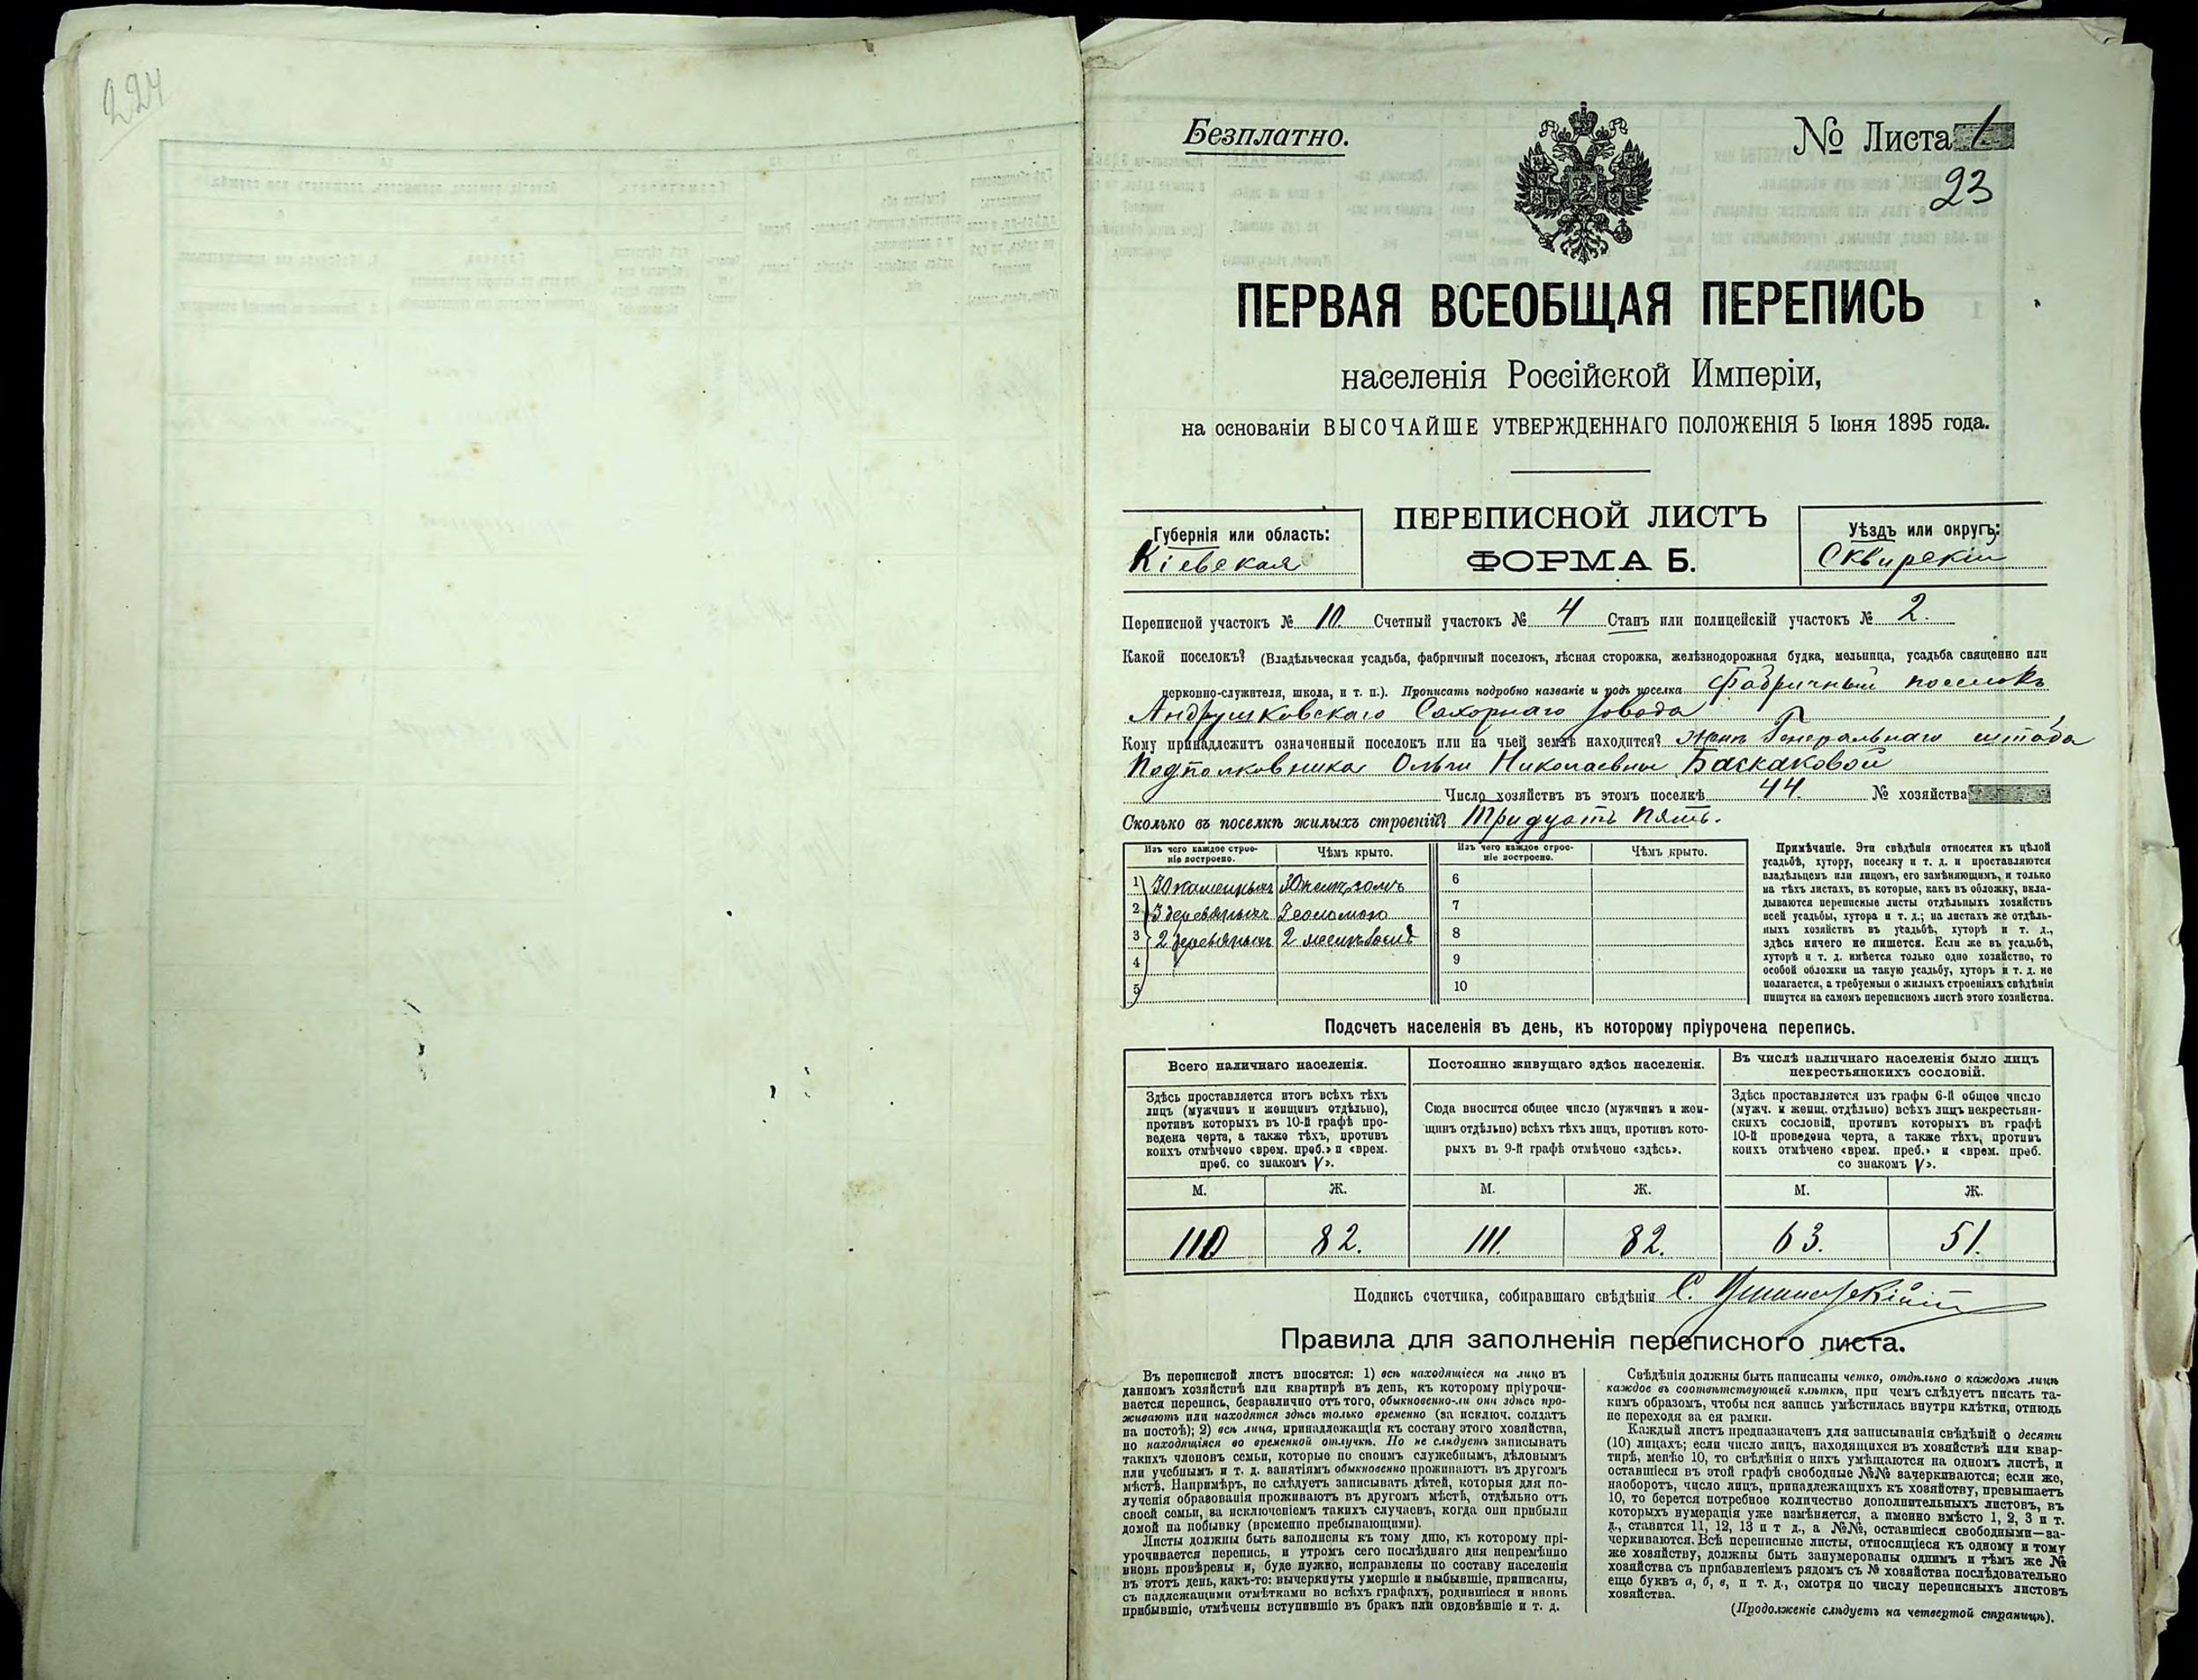 224
Безплатно.
№ Листа 1
23
ПЕРВАЯ ВСЕОБЩАЯ ПЕРЕПИСЬ
населенія Россійской Имперіи,
на основаніи ВЫСОЧАЙШЕ УТВЕРЖДЕННАГО ПОЛОЖЕНІЯ 5 Іюня 1895 года.
Губернія или область:
Кіевская
ПЕРЕПИСНОЙ ЛИСТЪ
ФОРМА Б.
Уѣздъ или округъ:
Сквирскій
Переписной участокъ № 10 Счетный участокъ № 4 Станъ или полицейскій участокъ № 2.
Какой поселокъ? (Владѣльческая усадьба, фабричный поселокъ, лѣсная сторожка, желѣзнодорожная будка, мельница, усадьба священно или
церковно-служителя, школа, и т. п.). Прописать подробно названіе и родъ поселка Фабричный поселокъ
Андрушковскаго Сахорнаго Завода
Кому принадлежитъ означенный поселокъ или на чьей землѣ находится? жены Генеральнаго штаба
Подполковника Ольги Николаевны Баскаковой
Число хозяйствъ въ этомъ поселкѣ 44. № хозяйства
Сколько въ поселкѣ жилыхъ строеній? Тридцать пять.
Изъ чего каждое строе-
ніе построено.
Чѣмъ крыто.
Изъ чего каждое строе-
ніе построено.
Чѣмъ крыто.
1 30 каменныхъ 30 желѣзомъ 6
2 3 деревяныхъ 3 соломою 7
3 2 деревяныхъ 2 8
4 9
5 10
Примѣчаніе. Эти свѣдѣнія относятся къ цѣлой
усадьбѣ, хутору, поселку и т. д. и проставляются
владѣльцемъ или лицомъ, его замѣняющимъ, и только
на тѣхъ листахъ, въ которые, какъ въ обложку, вкла-
дываются переписные листы отдѣльныхъ хозяйствъ
всей усадьбы, хутора и т. д.; на листахъ же отдѣль-
ныхъ хозяйствъ въ усадьбѣ, хуторѣ и т. д.,
здѣсь ничего не пишется. Если же въ усадьбѣ,
хуторѣ и т. д. имѣется только одно хозяйство, то
особой обложки на такую усадьбу, хуторъ и т. д. не
полагается, а требуемыя о жилыхъ строеніяхъ свѣдѣнія
пишутся на самомъ переписномъ листѣ этого хозяйства.
Подсчетъ населенія въ день, къ которому пріурочена перепись.
Всего наличнаго населенія.
Постоянно живущаго здѣсь населенія.
Въ числѣ наличнаго населенія было лицъ
некрестьянскихъ сословій.
Здѣсь проставляется итогъ всѣхъ тѣхъ
лицъ (мужчинъ и женщинъ отдѣльно),
противъ которыхъ въ 10-й графѣ про-
ведена черта, а также тѣхъ, противъ
коихъ отмѣчено «врем. преб.» и «врем.
преб. со знакомъ V».
Сюда вносится общее число (мужчинъ и жен-
щинъ отдѣльно) всѣхъ тѣхъ лицъ, противъ кото-
рыхъ въ 9-й графѣ отмѣчено «здѣсь».
Здѣсь проставляется изъ графы 6-й общее число
(мужч. и женщ. отдѣльно) всѣхъ лицъ некрестьян-
скихъ сословій, противъ которыхъ въ графѣ
10-й проведена черта, а также тѣхъ, противъ
коихъ отмѣчено «врем. преб.» и «врем. преб.
со знакомъ V».
М. Ж. М. Ж. М. Ж.
110 82. 111. 82. 63. 51.
Подпись счетчика, собиравшаго свѣдѣнія С.
Правила для заполненія переписного листа.
Въ переписной листъ вносятся: 1) всѣ находящіеся на лицо въ
данномъ хозяйствѣ или квартирѣ въ день, къ которому пріурочи-
вается перепись, безразлично отъ того, обыкновенно-ли они здѣсь про-
живаютъ или находятся здѣсь только временно (за исключ. солдатъ
на постоѣ); 2) всѣ лица, принадлежащія къ составу этого хозяйства,
но находящіяся во временной отлучкѣ. Но не слѣдуетъ записывать
такихъ членовъ семьи, которые по своимъ служебнымъ, дѣловымъ
или учебнымъ и т. д. занятіямъ обыкновенно проживаютъ въ другомъ
мѣстѣ. Напримѣръ, не слѣдуетъ записывать дѣтей, которыя для по-
лученія образованія проживаютъ въ другомъ мѣстѣ, отдѣльно отъ
своей семьи, за исключеніемъ такихъ случаевъ, когда они прибыли
домой на побывку (временно пребывающими).
Листы должны быть заполнены къ тому дню, къ которому прі-
урочивается перепись, и утромъ сего послѣдняго дня непремѣнно
вновь провѣрены и, буде нужно, исправлены по составу населенія
въ этотъ день, какъ-то: вычеркнуты умершіе и выбывшіе, приписаны,
съ надлежащими отмѣтками во всѣхъ графахъ, родившіеся и вновь
прибывшіе, отмѣчены вступившіе въ бракъ или овдовѣвшіе и т. д.
Свѣдѣнія должны быть написаны четко, отдѣльно о каждомъ лицѣ
каждое въ соотвѣтствующей клѣткѣ, при чемъ слѣдуетъ писать та-
кимъ образомъ, чтобы вся запись умѣстилась внутри клѣтки, отнюдь
не переходя за ея рамки.
Каждый листъ предназначенъ для записыванія свѣдѣній о десяти
(10) лицахъ; если число лицъ, находящихся въ хозяйствѣ или квар-
тирѣ, менѣе 10, то свѣдѣнія о нихъ умѣщаются на одномъ листѣ, и
оставшіеся въ этой графѣ свободные №№ зачеркиваются; если же,
наоборотъ, число лицъ, принадлежащихъ къ хозяйству, превышаетъ
10, то берется потребное количество дополнительныхъ листовъ, въ
которыхъ нумерація уже измѣняется, а именно вмѣсто 1, 2, 3 и т.
д., ставятся 11, 12, 13 и т д., а №№, оставшіеся свободными—за-
черкиваются. Всѣ переписные листы, относящіеся къ одному и тому
же хозяйству, должны быть занумерованы однимъ и тѣмъ же №
хозяйства съ прибавленіемъ рядомъ съ № хозяйства послѣдовательно
еще буквъ а, б, в, и т. д., смотря по числу переписныхъ листовъ
хозяйства.
(Продолженіе слѣдуетъ на четвертой страницѣ).